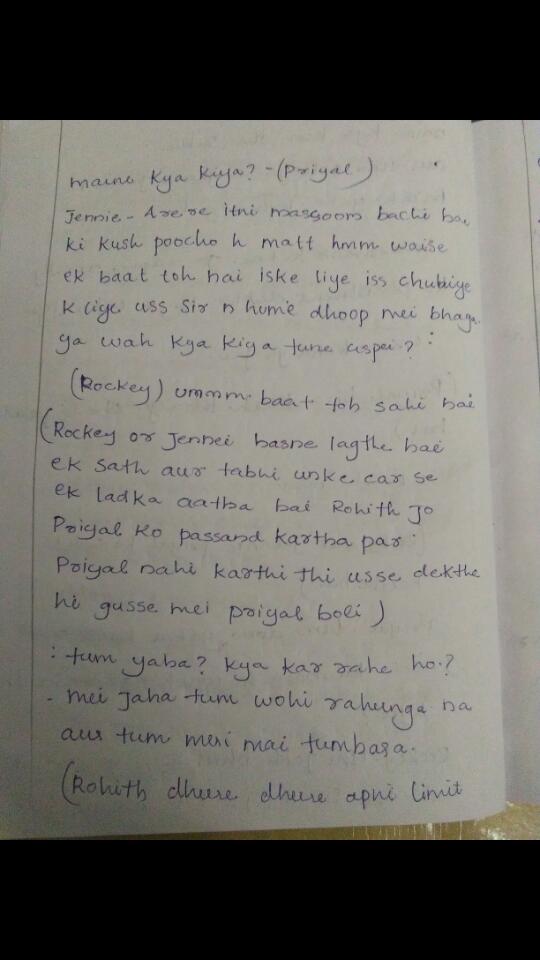 maine Kya Kiya? -(Priyal)
Jennie - Arere itni masoom bachi hai
ki kush poocho h matt hmm waise
ek baat toh hai iske liye iss chubiye
k liye uss Sir n hume dhoop mei bhaga
ya wah Kya Kiya tune uspei?
(Rockey) ummm baat toh sahi hai
(Rockey or Jennei hasne lagthe hai
ek sath aur tabhi unke car se
ek ladka aatha hai Rohith Jo
Priyal ko passand kartha par
Priyal nahi karthi thi usse dekthe
hi gusse mei priyal boli)
: tum yaha? kya kar rahe ho.?
- mei Jaha tum wohi rahunga na
aur tum meri mai tumhara.
(Rohith dheere dheere apni limit